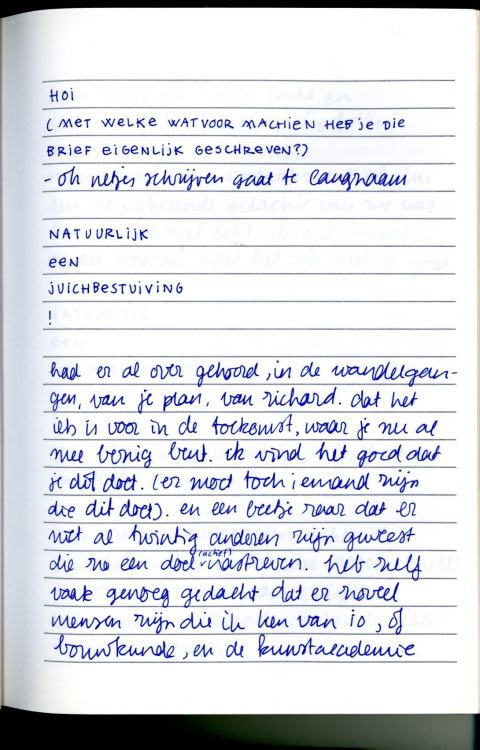 HOI
(MET WELKE WATVOOR MACHIEN HEB JE DIE
BRIEF EIGENLIJK GESCHREVEN?)
- oh netjes schrijven gaat te langzaam
NATUURLIJK
EEN
JUICHBESTUIVING
!
had er al over gehoord, in de wandelgan-
gen, van je plan, van richard. dat het
iets is voor in de toekomst, waar je nu al
mee bezig bent. ik vind het goed dat
je dit doet. (er moet toch iemand zijn
die dit doet). en een beetje raar dat er
niet al twintig anderen zijn geweest
die zo een doel (achtig) nastreven. heb zelf
vaak genoeg gedacht dat er zoveel
mensen zijn die ik ken van io, of
bouwkunde, en de kunstacademie